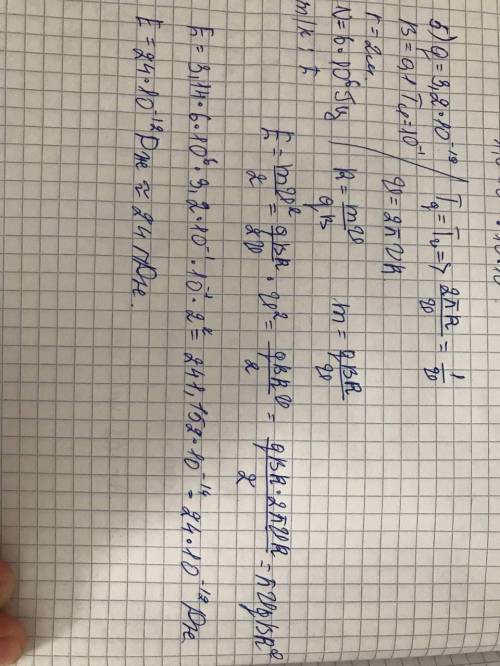 б) q = 3,2·10⁻¹⁹
B = 0,1 Тл = 10⁻¹
r = 2м
N = 6·10⁶ Гц
m/к ; t
Tq = Tν => 2πR/υ = 1/ν
υ = 2πνR
R = mυ/qB
m = qBR/υ
E = mυ²/2 = qBR/2υ · υ² = qBRυ/2 = qBR·2πνR/2 = πνqBR²
E = 3,14·6·10⁶·3,2·10⁻¹·10⁻¹·2² = 241,152·10⁻¹⁴ = 24·10⁻¹² Дж
E = 24·10⁻¹² Дж ≈ 24 пДж.